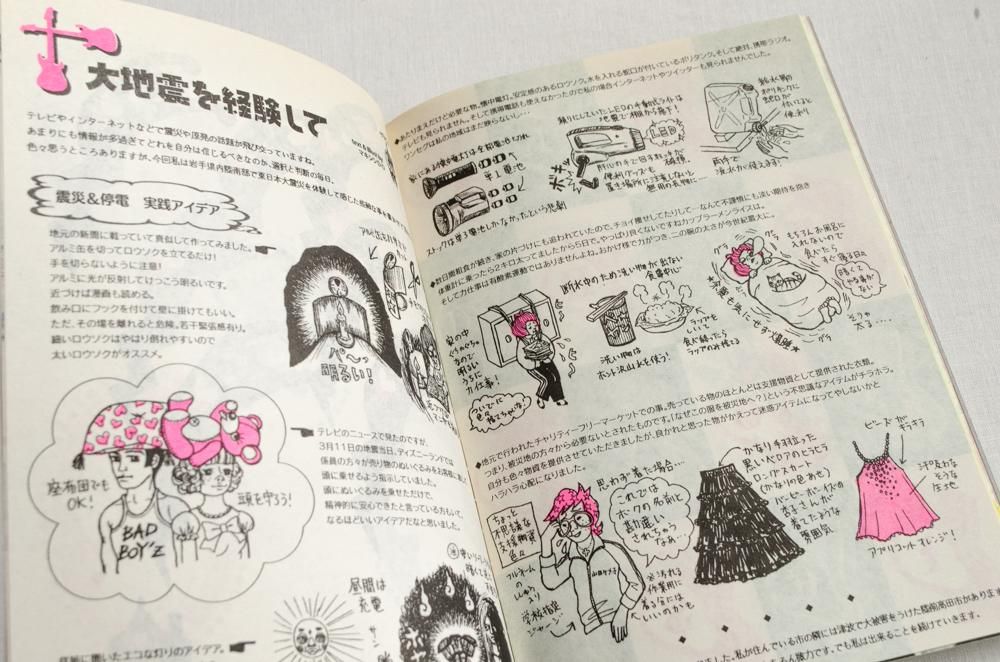 大地震を経験して
テレビやインターネットなどで震災や原発の話題が飛び交っていますね。
あまりにも情報が多過ぎてどれを自分は信じるべきなのか、選択と判断の毎日。
色々思うところありますが、今回私は岩手県内陸南部で東日本大震災を体験して感じた
震災&停電 実践アイデア
地元の新聞に載っていて真似して作ってみました。
アルミ缶を切ってロウソクを立てるだけ!
手を切らないように注意!
アルミに光が反射してけっこう明るいです。
近づけば漫画も読める。
飲み口にフックを付けて壁に掛けてもいい。
ただ、その場を離れると危険。若干緊張感有り。
細いロウソクはやはり倒れやすいので
太いロウソクがオススメ。
パ〜ッ
明るい!
座布団でも
OK!
頭を守ろう!
BAD
BOY'Z
テレビのニュースで見たのですが、
3月11日の地震当日、ディズニーランドでは
係員の方々が売り物のぬいぐるみをお客様に
頭に乗せるよう指示していました。
頭にぬいぐるみを乗せただけで、
精神的に安心できたと言っている方もいて、
なるほどいいアイデアだなと思いました。
昼間は
充電
◆あたりまえだけど必要な物。懐中電灯。安定感のあるロウソク。水を入れる蛇口が付いているポリタンク。そして絶対、携帯ラジオ。
テレビも見られません。そして携帯電話も使えなかったので私の場合インターネットやツイッターも見られませんでした。
ワンセグは私の地域はまだ映らないし…
単1電池
ストックは単3電池しかなかったという悲劇
頼りにしていたLEDの手動式ライトは
地震で棚から落下
LED
ボキッ
便利グッズも
置き場所に注意しないと
無用の長物に…
給水用
ポリタンクに
蛇口が
付いてると
便利
◆数日間粗食が続き、家の片づけにも追われていたので、チョイ痩せしてたりして…なんて不謹慎にも淡い期待を抱き
体重計に乗ったら2キロ太ってました
そして力仕事は有酸素運動ではありませんよね。おかげ様で力がつき、二の腕の太さが今世紀最大に。
断水中のため洗い物が出ない
食事中心
家の中
ぐちゃぐちゃ
なので
明るい
うちに
力仕事!
洗い物は
ホント沢山水を使う!
ラップを
しいて
食べ終ったら
ラップのみ捨てる
もちろんお風呂に
入れないので
食べたら
すぐ寝る日々
グラ
グラ
余震も気にせず爆睡
そりゃ
太る…
◆地元で行われたチャリティーフリーマーケットでの事。売っている物のほとんどは支援物資として提供された衣類。
つまり、被災地の方々から必要ないとされたものです。「なぜこの服を被災地へ?」という不思議なアイテムがチラホラ。
自分も色々物資を提供させていただきましたが、良かれと思った物がかえって迷惑アイテムになってやしないかと
ハラハラ心配になりました。
ちょっと
不思議な
支援物資
色々
フルネームの
ししゅう
学校指定
ジャージ
思わず着た場合…
これでは
ボクの名前と
勘違い
されちゃう
なあ…
※汚れる
作業用に
着る分には
いいのかも
かなり手強そうな
黒いベロアのヒラヒラ
ロングスカート
(かなりの色あせ)
バービーボーイズの
杏子さんが
着てたような
雰囲気
ビーズが
ギラギラ
アプリコットオレンジ!
私が住んでいる市の隣には津波で大被害をうけた陸前高田市があります
でも私は出来ることを続けていきます。